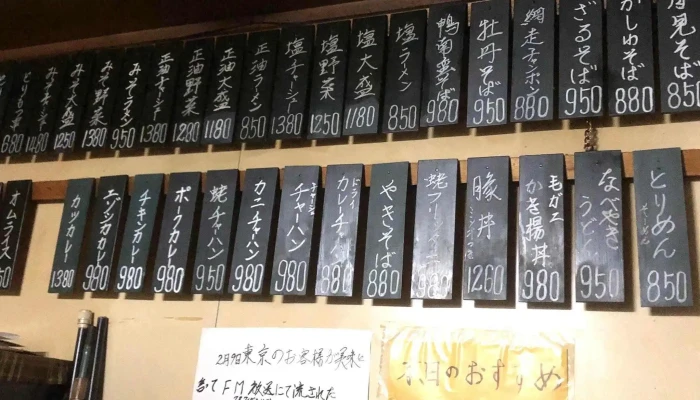 月見そば 850
かしゅそば 880
ざるそば 950
網走チャンポン 880
牡丹そば 950
鴨南蛮そば 980
塩ラーメン 850
塩大盛 1180
塩野菜 1250
塩チャーシュー 1380
正油ラーメン 850
正油大盛 1180
正油野菜 1280
正油チャーシュー 1380
みそラーメン 950
みそ野菜 1380
みそ大盛 1250
みそチャーシュー 1480
680
とりめん 850
なべやきうどん 950
モガエ かき揚丼 980
豚丼 1260
980
やきそば 880
ドライカレーチャハン 880
チャーシューチャハン 980
カニチャハン 980
蛯チャハン 950
ポークカレー 980
チキンカレー 980
エバシカカレー 980
カツカレー 1380
オムライス
2月9日東京のお客様が美味と
言ってFM放送にて流された
本日のおすすめ